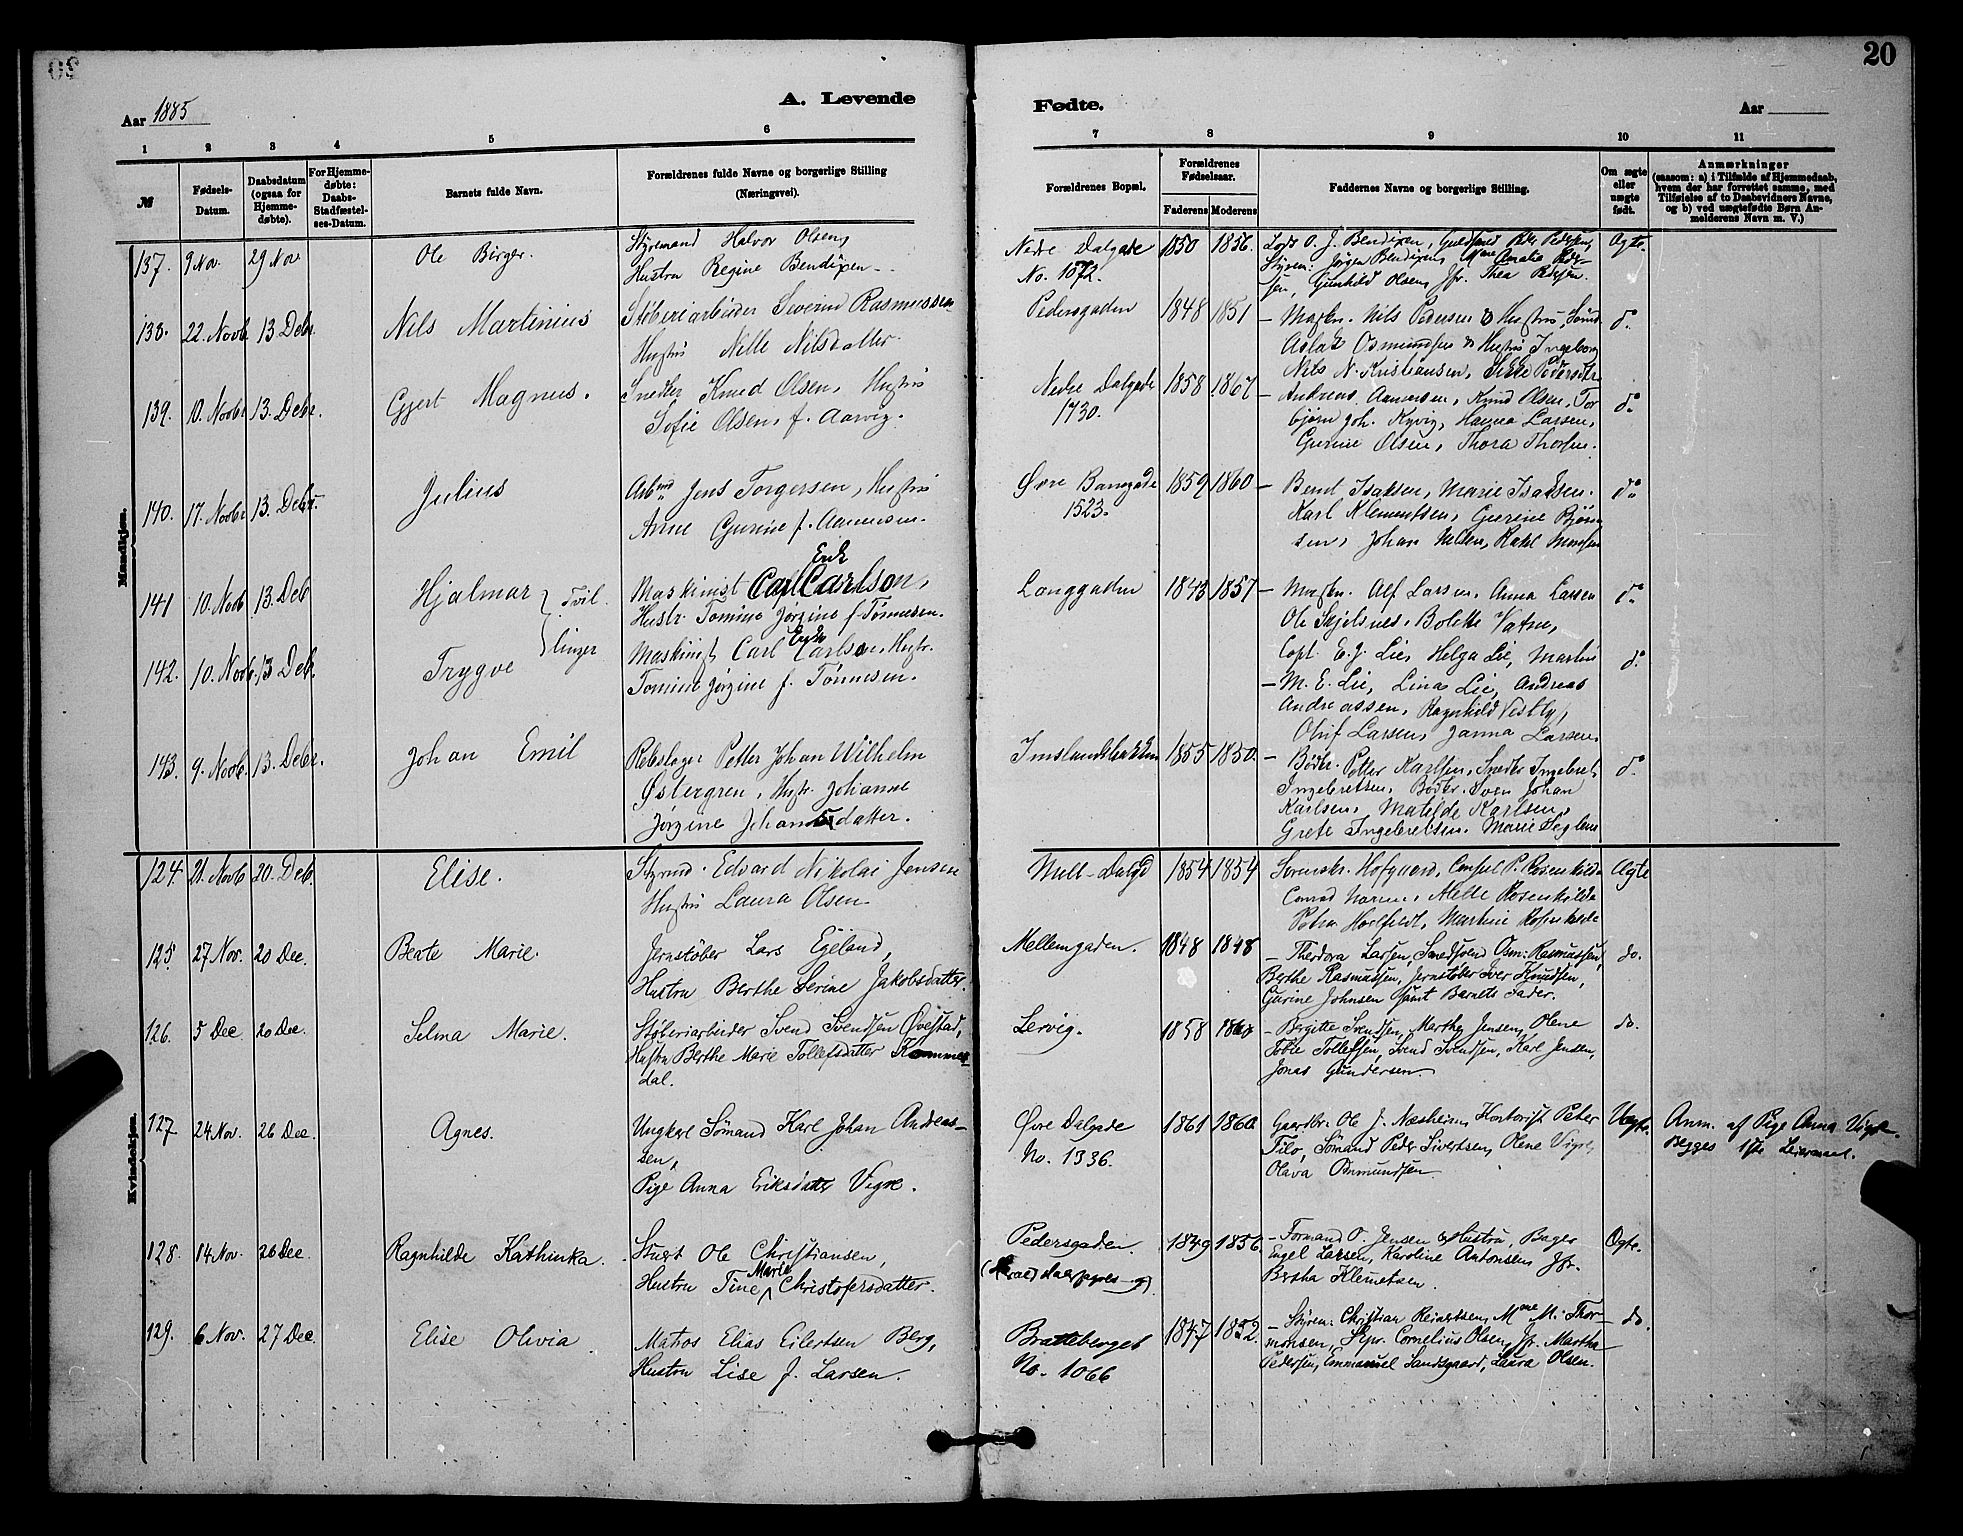 20
A. Levende
Fødte.
Aar 1885
Aar
1 2 3 4 5 6 7 8 9 10 11
№
Fødsels-
Datum.
Daabsdatum
(ogsaa for
Hjemme-
døbte).
For Hjemme-
døbte:
Daabs-
Stadfæstel-
ses-Datum.
Barnets fulde Navn.
Forældrenes fulde Navne og borgerlige Stilling
(Næringsvei).
Forældrenes Bopæl.
Forældrenes
Fødselsaar.
Faderens Moderens
Faddernes Navne og borgerlige Stilling.
Om ægte
eller
uægte
født.
Anmærkninger
(saasom: a) i Tilfælde af Hjemmedaab,
hvem der har forrettet samme, med
Tilføielse af to Daabsvidners Navne,
og b) ved uægtefødte Børn An-
melderens Navn m. V.)
Mandkjøn.
137. 9 Nov. 29 Nov. Ole Birger.
Styrmand Halvor Olsen,
Hustru Regine Bendixen
Nedre Dalgade
No. 1872.
1850 1856.
O. J. Bendixen, Peder Pedersen,
Styrm: Jørgen Bendixen, Mme Amalie Peder-
sen, Gunhild Olsen, Jfr. Thea Pedersen.
Ægte.
138. 22. Novbr. 13 Debr. Nils Martinius
Støberiarbeider Severin Rasmussen
Hustru Nille Nilsdatter.
Pedersgaden 1848 1851
Nils Pedersen & Hustru,
Aslak Osmundsen & Hustru Ingeborg
Nils N. Kristiansen,
do.
139. 10. Novbr. 13. Debr. Gjert Magnus.
Snedker Knud Olsen, Hustru
Sofie Olsen, f. Aarvig.
Nedre Dalgade
1730.
1858 1867
Andreas Aanensen, Knud Olsen, Tor-
bjørn Joh. Kyvig, Hanna Larsen,
Gurine Olsen, Thora Thorsen.
do.
140. 17. Novbr. 13. Debr. Julius
Arbmd. Jens Torgersen, Hustru
Anne Gurine f. Aanensen.
Øvre Banegade
1523.
1859 1860
Bernt Isaksen, Marie Isaksen.
Karl Klementsen, Gurine Bjørn-
sen, Johan Nilsen, Rakel Monsen
do.
141 10. Novb. 13. Deb. Hjalmar } Tvil-
Maskinist Carl Erik Carlson,
Hustr. Tomine Jørgine f. Tønnesen.
Langgaden 1843 1857
Alf Larsen, Anna Larsen
Ole Skjelsnes, Bolette Vatne,
do.
142. 10. Novb. 13 Deb. Trygve } linger
Maskinist Carl Erik Carlson, Hustr.
Tomine Jørgine f. Tønnesen.
Capt. E. J. Lie, Helga Lie, Martin
M. E. Lie, Lina Lie, Andreas
Andreassen, Ragnhild Vestly,
Oluf Larsen, Janna Larsen.
do.
143. 9. Novbr. 13. Debr. Johan Emil
Rebslager Petter Johan Wilhelm
Østergren, Hustr. Johanne
Jørgine Johansdatter.
Imslandsbakken 1855 1850.
Bødkr. Petter Karlsen, Snedkr Ingebret
Ingebretsen, Bødkr. Sven Johan
Karlsen, Matilde Karlsen,
Grete Ingebretsen. Marie Seglem
do.
Kvindekjøn.
124. 21. Novb. 20. Deb. Elise.
Styrmd. Edvard Nikolai Jensen
Hustru Laura Olsen.
Mell-Dalgd 1854 1854
Sorenskr. Hofgaard, Consul P. Rosenkilde
Martine Rosenkilde
Ægte
125. 27 Nov. 20 Dec. Beate Marie.
Jernstøber Lars Egeland,
Hustru Berthe Serine Jakobsdatter.
Mellemgaden. 1848 1848
Theodora Larsen, Smedsvend Osm: Rasmussen,
Berthe Rasmussen, Jernstøber Iver Knudsen,
Gurine Johnsen samt Barnets Fader.
do.
126. 5 Dec 20 Dec. Selma Marie.
Støberiarbeider Svend Svendsen Øvestad,
Hustru Berthe Marie Tollefsdatter Kommes-
dal.
Lervig. 1858
Bergitte Svendsen, Marthe Jensen, Olene
Tollefsen, Svend Svendsen, Karl Jensen,
Jonas Gundersen.
do.
127 24 Nov. 26 Dec. Agnes.
Ungkarl Sømand Karl Johan Andreas-
sen,
Pige Anna Eriksdatter Vigre.
Øvre Dalgade
No. 1336.
1861 1860.
Gaardbr. Ole J. Næsheim, Kontorist Peter
Tilo, Sømand Peder Sivertsen, Olena Vigre,
Olava Osmundsen.
Uægte.
Anm. af Pige Anna Vigre.
Begges 1ste Leiermaal.
128. 14 Nov. 26 Dec. Ragnhilde Kathinka.
Stuert Ole Christiansen,
Hustru Tine Marie Christofersdatter.
Pedersgaden.
1849 1856.
Formand O. Jensen & Hustru, Bager
Engel Larsen, Karoline Antonsen, Jfr.
Bertha Klemetsen.
Ægte.
129. 6 Nov. 27 Dec. Elise Olivia
Matros Elias Eilertsen Berg,
Hustru Lise f. Larsen.
Bratteberget
No. 1066
1847 1852.
Styrm: Christian Reinertsen, Mme M. Thor-
monsen, Skpr. Cornelius Olsen, Jfr. Martha
Pedersen, Emmanuel Sandsgaard, Laura Olsen.
do.